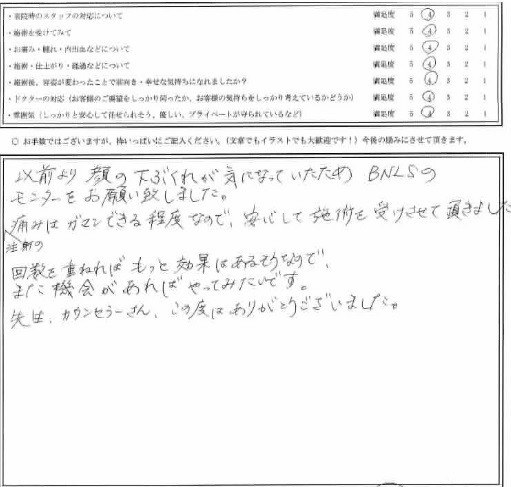 ・来院時のスタッフの対応について 満足度 5 4 3 2 1
・施術を受けてみて 満足度 5 4 3 2 1
・お痛み・腫れ・内出血などについて 満足度 5 4 3 2 1
・施術・仕上がり・経過などについて 満足度 5 4 3 2 1
・施術後、容姿が変わったことで前向き・幸せな気持ちになれましたか? 満足度 5 4 3 2 1
・ドクターの対応(お客様のご要望をしっかり伺ったか、お客様の気持ちをしっかり考えているかどうか) 満足度 5 4 3 2 1
・雰囲気(しっかりと安心して任せられそう、優しい、プライベートが守られているなど) 満足度 5 4 3 2 1
○ お手数ではございますが、枠いっぱいにご記入ください。(文章でもイラストでも大歓迎です!)今後の励みにさせて頂きます。
以前より 顔の下ぶくれが気になっていたため BNLSの
モニターをお願い致しました。
痛みは ガマンできる程度なので、安心して施術を受けさせて頂きました
注射の
回数を重ねれば もっと 効果はあるそうなので、
また機会があれば やってみたいです。
先生、カウンセラーさん、この度は ありがとうございました。